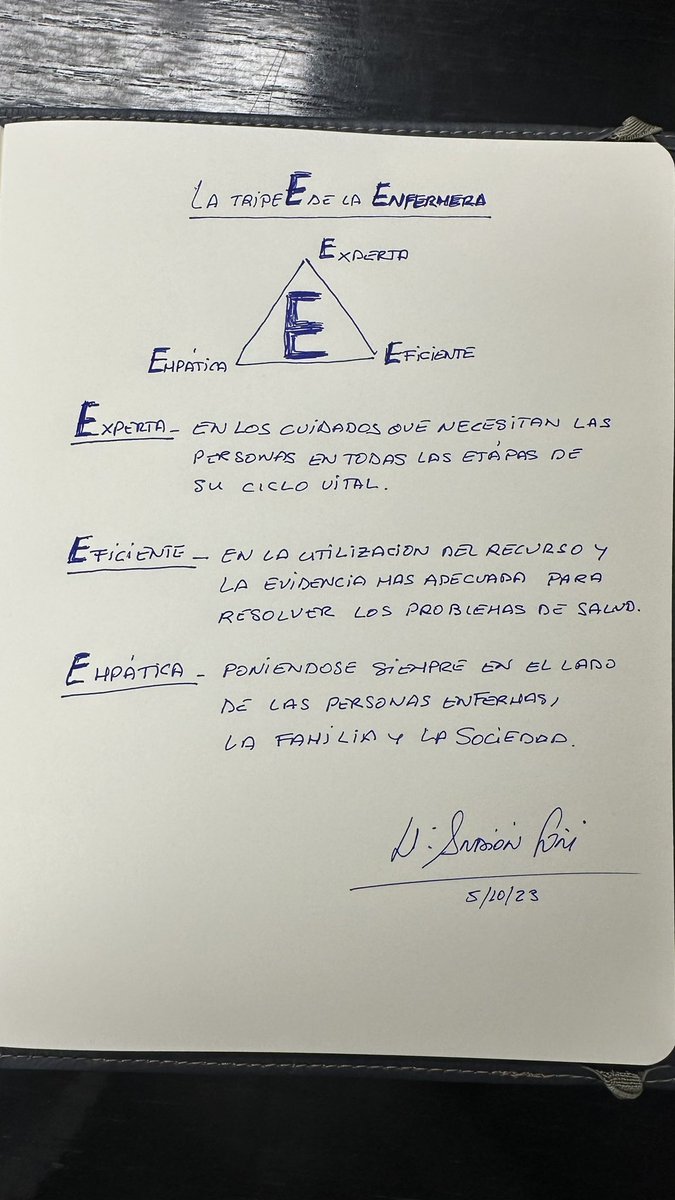 LA TRIPE E DE LA ENFERMERA
EXPERTA
E
EMPÁTICA
EFICIENTE
EXPERTA - EN LOS CUIDADOS QUE NECESITAN LAS
PERSONAS EN TODAS LAS ETÁPAS DE
SU CICLO VITAL.
EFICIENTE - EN LA UTILIZACION DEL RECURSO Y
LA EVIDENCIA MAS ADECUADA PARA
RESOLVER LOS PROBLEMAS DE SALUD.
EMPÁTICA - PONIENDOSE SIEMPRE EN EL LADO
DE LAS PERSONAS ENFERMAS,
LA FAMILIA Y LA SOCIEDAD.
5/10/23